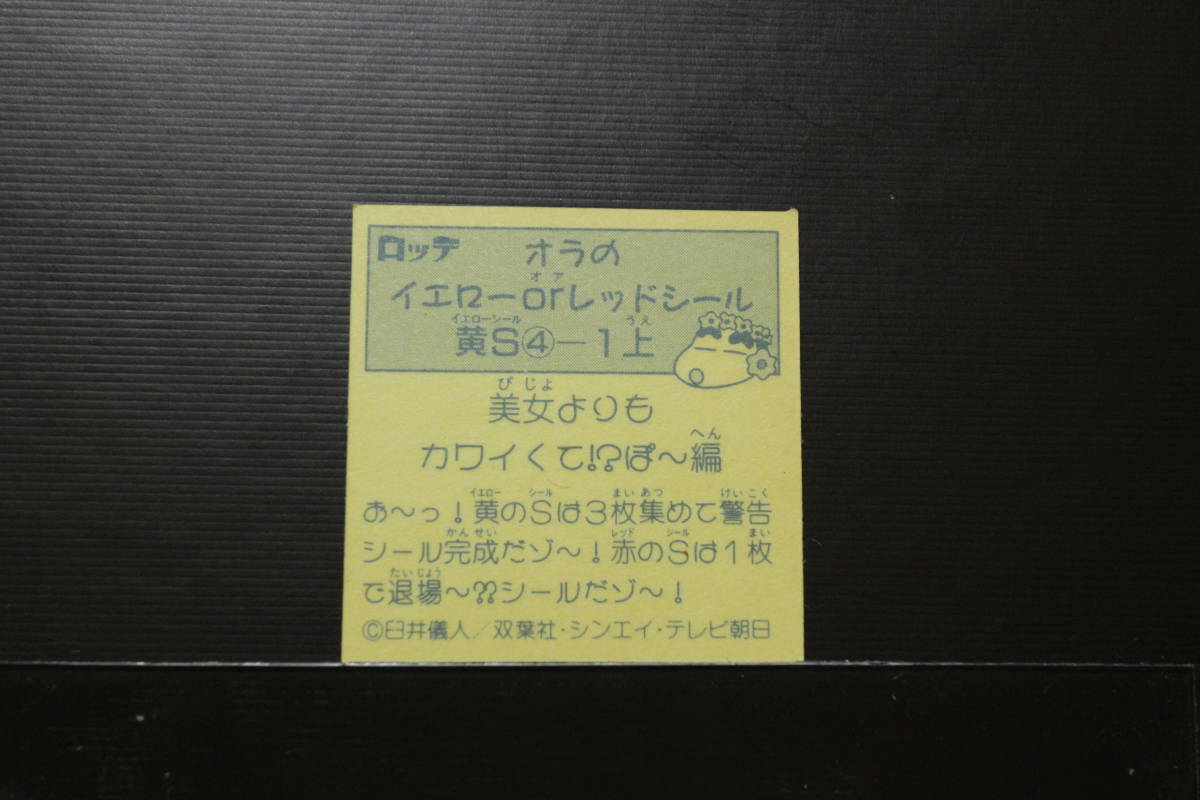 ロッテ オラの
イエローorレッドシール
黄S④ー1上
美女よりも
カワイくて!?ぽ〜編
お〜っ!黄のSは3枚集めて警告
シール完成だゾ〜!赤のSは1枚
で退場〜??シールだゾ〜!
©臼井儀人/双葉社・シンエイ・テレビ朝日